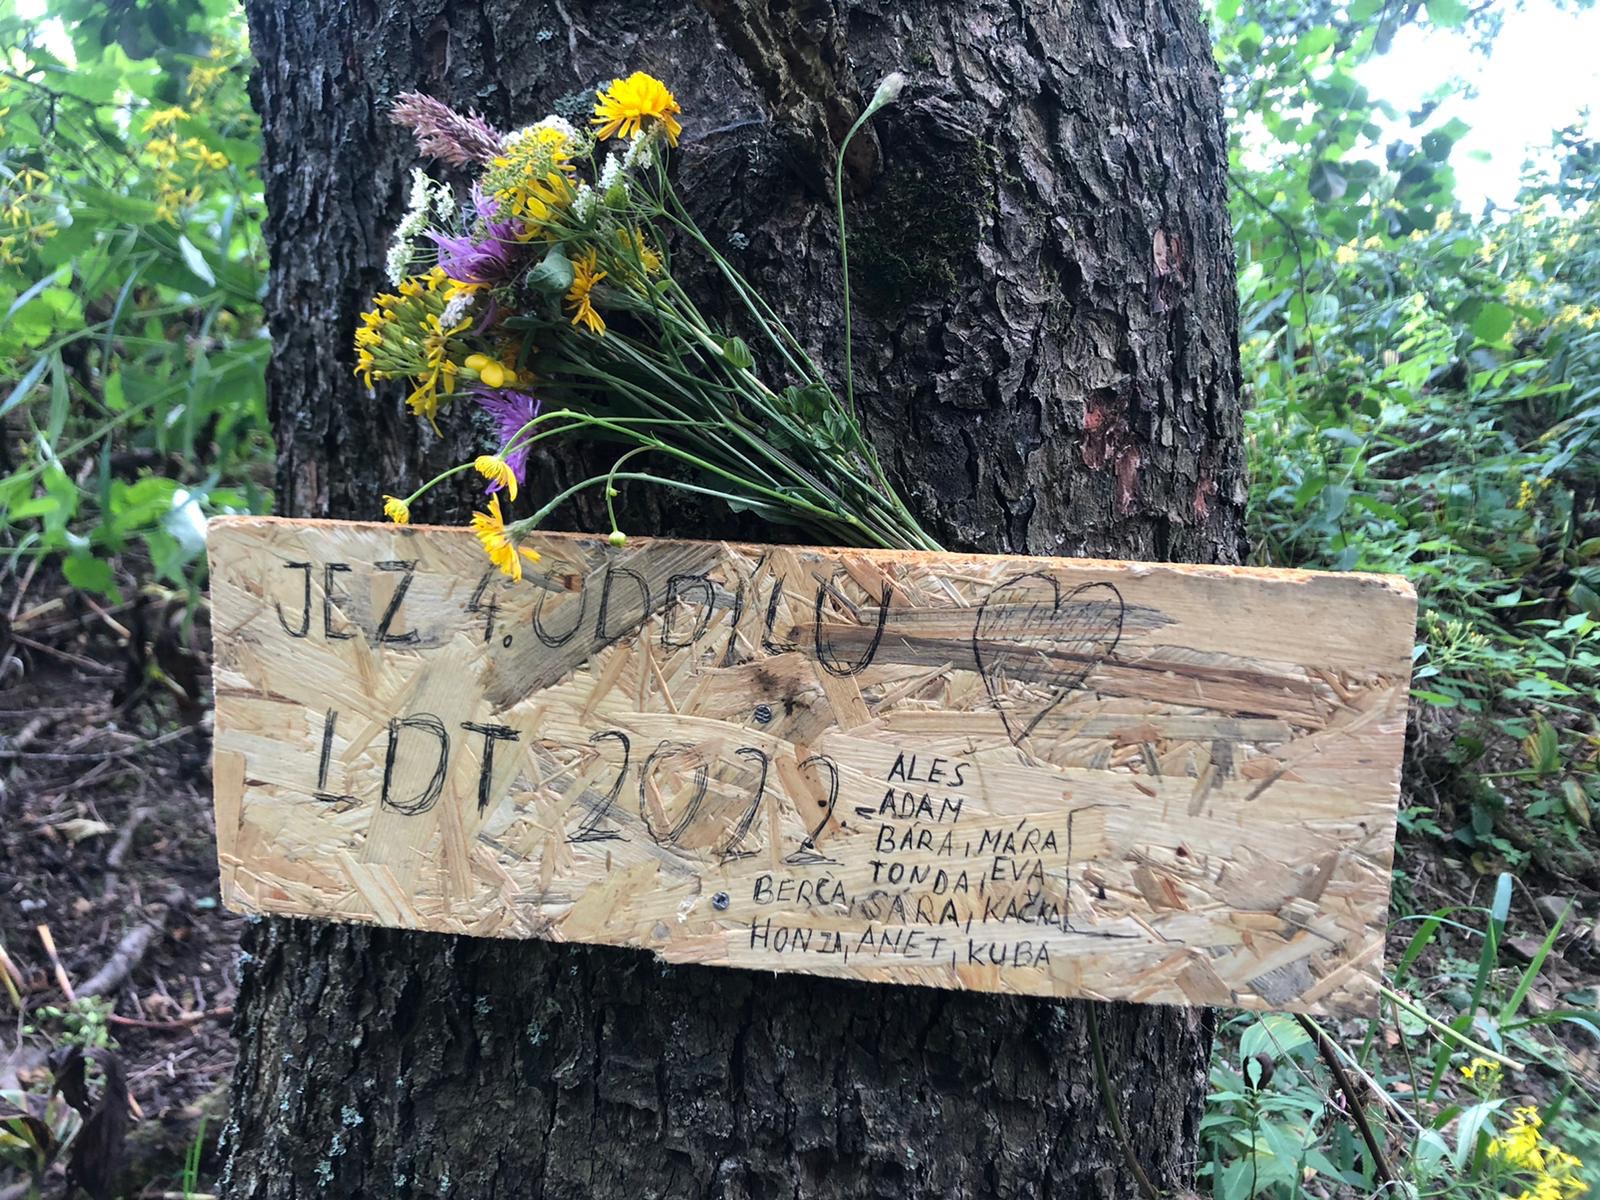 JEZ 4. ODDÍLU
LDT 2022
ALES
ADAM
BÁRA, MÁRA
TONDA, EVA
BERČA, SÁRA, KAČKA
HONZA, ANET, KUBA